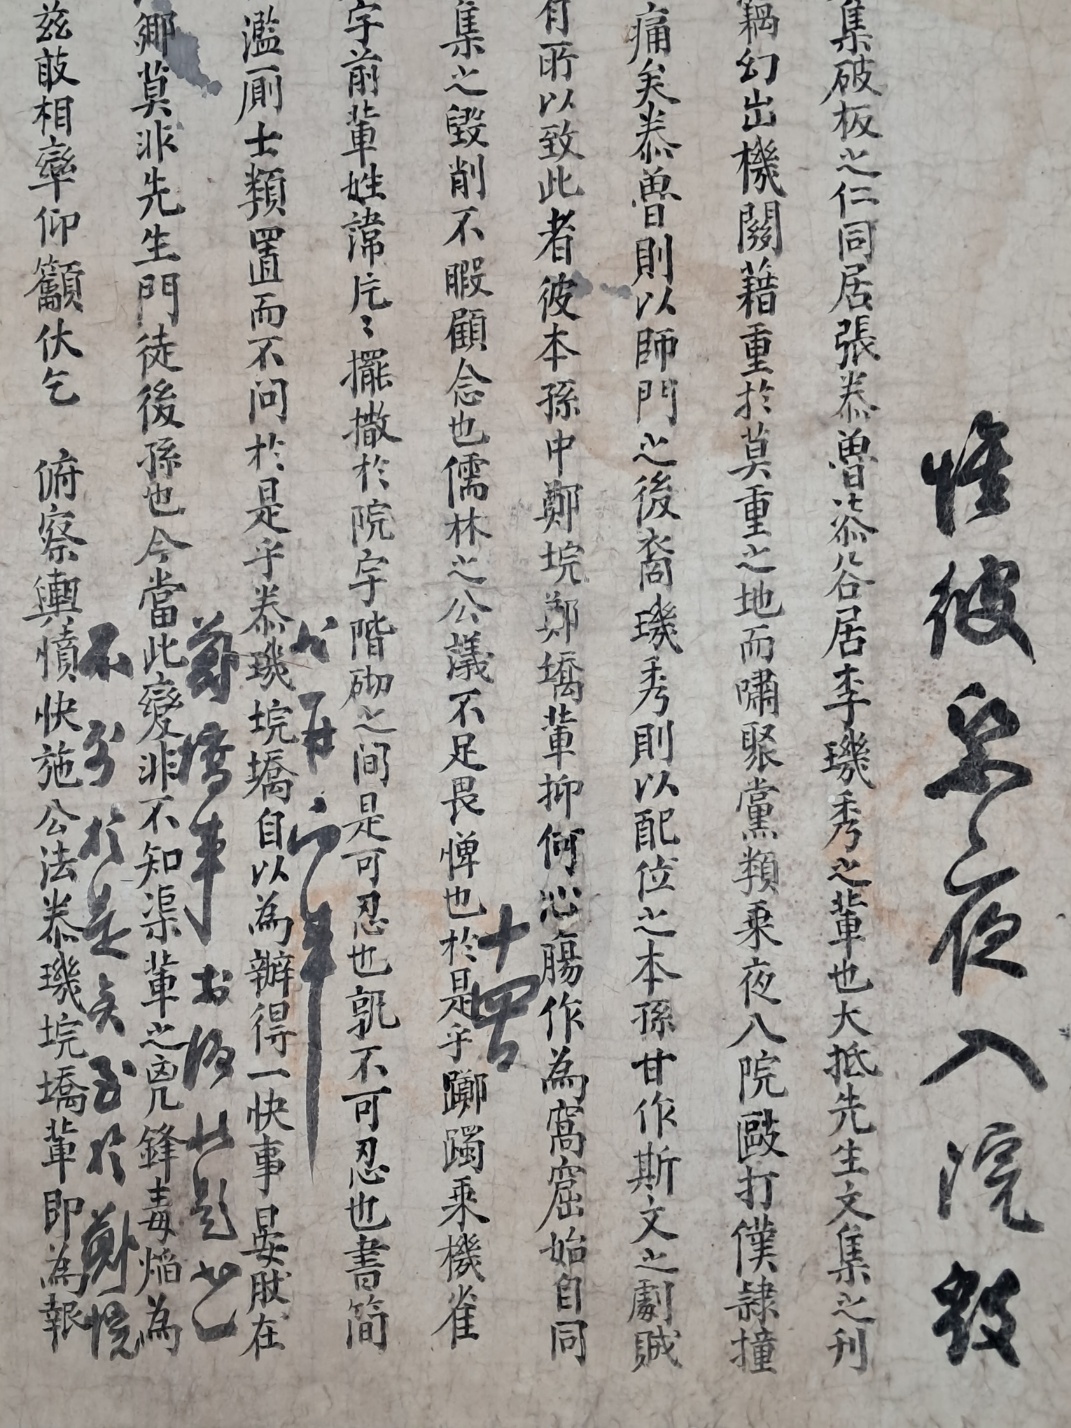 惟彼乘夜入院毀
集破板之仁同居張泰曾茶谷居李璣秀之輩也大抵先生文集之刊
竊幻出機關藉重於莫重之地而嘯聚黨類乘夜入院毆打僕隷撞
痛矣泰曾則以師門之後裔璣秀則以配位之本孫甘作斯文之劇賊
有所以致此者彼本孫中鄭垸鄭墧輩抑何心腸作爲窩窟始自同
十四
集之毀削不暇顧念也儒林之公議不足畏憚也於是乎躑躅乘機雀
字前輩姓諱片〻擺撒於院宇階砌之間是可忍也孰不可忍也書簡
濫厠士類置而不问於是乎泰璣垸墧自以為辦得一快事晏肰在
鄭墧事
鄉莫非先生門徒後孫也今當此變非不知渠輩之凶鋒毒焰為
茲敢相率仰籲伏乞 俯察輿憤快施公法泰璣垸墧輩即為報